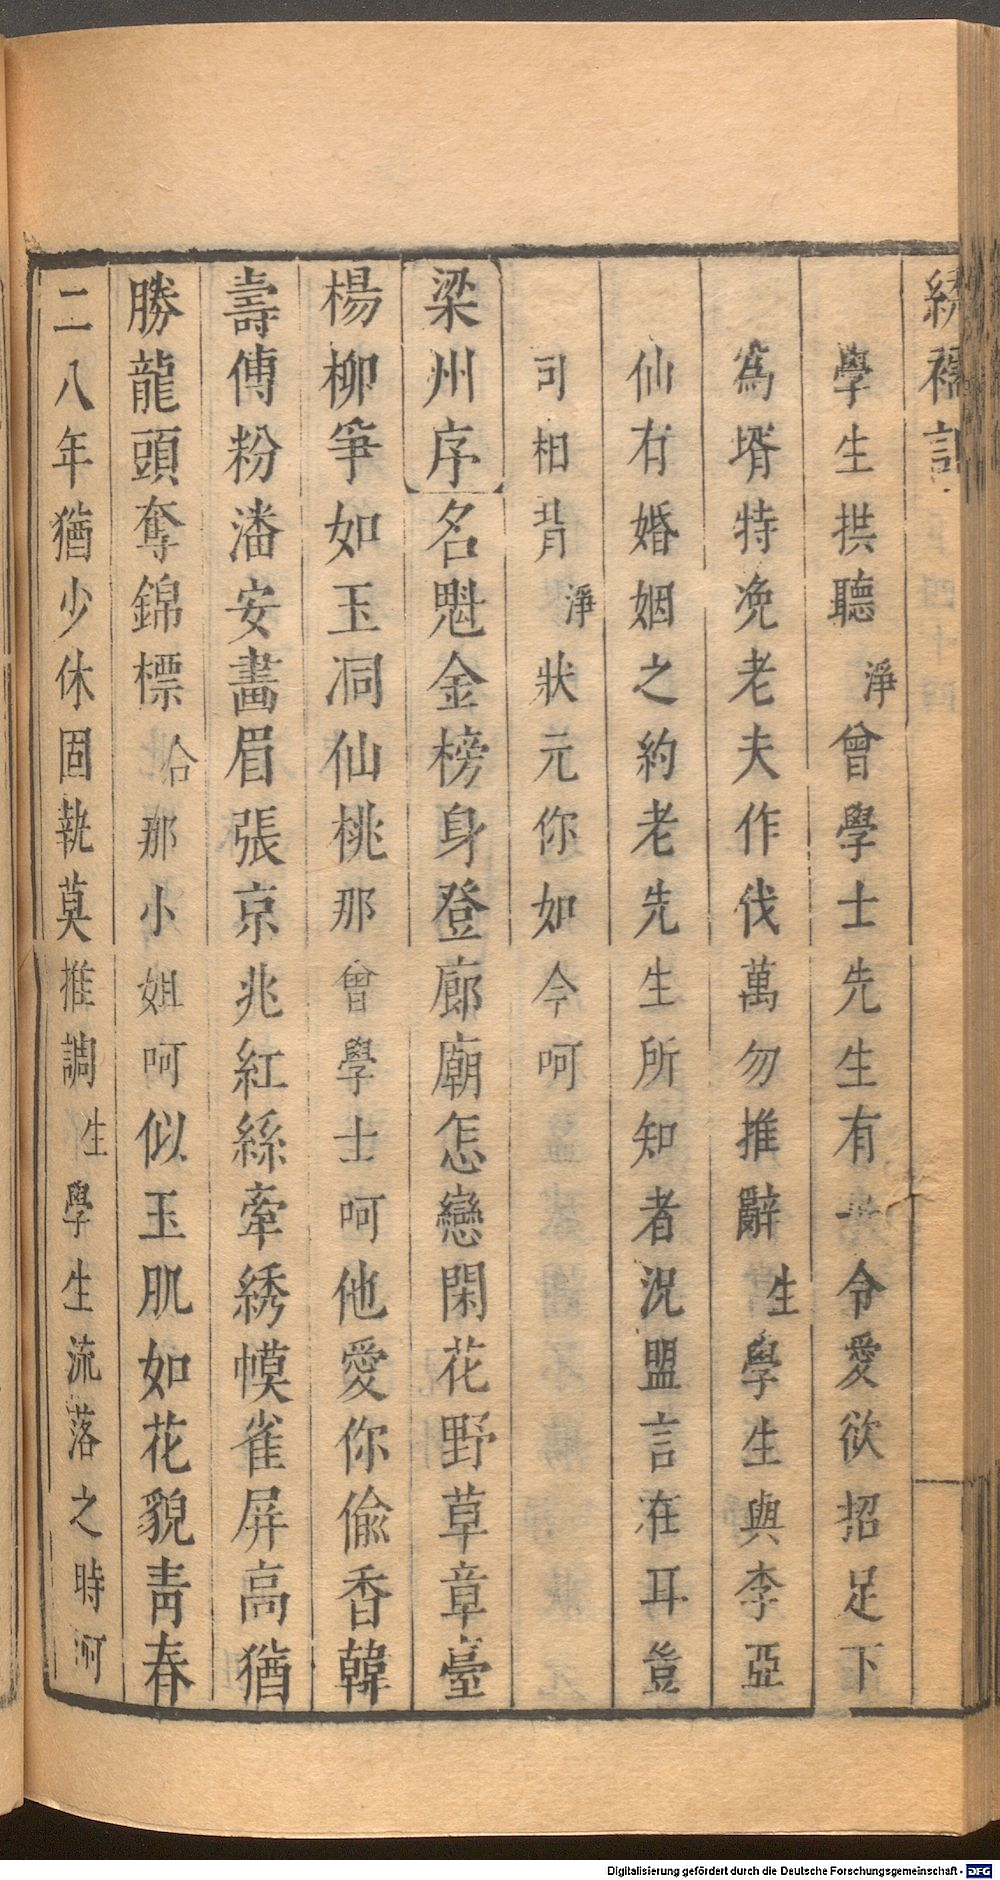 綉襦記
學生拱聽淨曾學士先生有一令愛欲招足下
為壻特浼老夫作伐萬勿推辭生學生與李亞
仙有婚姻之約老先生所知者況盟言在耳豈
可相背淨狀元你如今呵
梁州序名魁金榜身登廊廟怎戀閑花野草章臺
楊柳爭如玉洞仙桃那曾學士呵他愛你偸香韓
壽傅粉潘安畫眉張京兆紅絲牽綉幙雀屏高猶
勝龍頭奪錦標合那小姐呵似玉肌如花貌靑春
二八年猶少休固執莫推調生學生流落之時呵
Digitalisierung gefördert durch die Deutsche Forschungsgemeinschaft - DFG